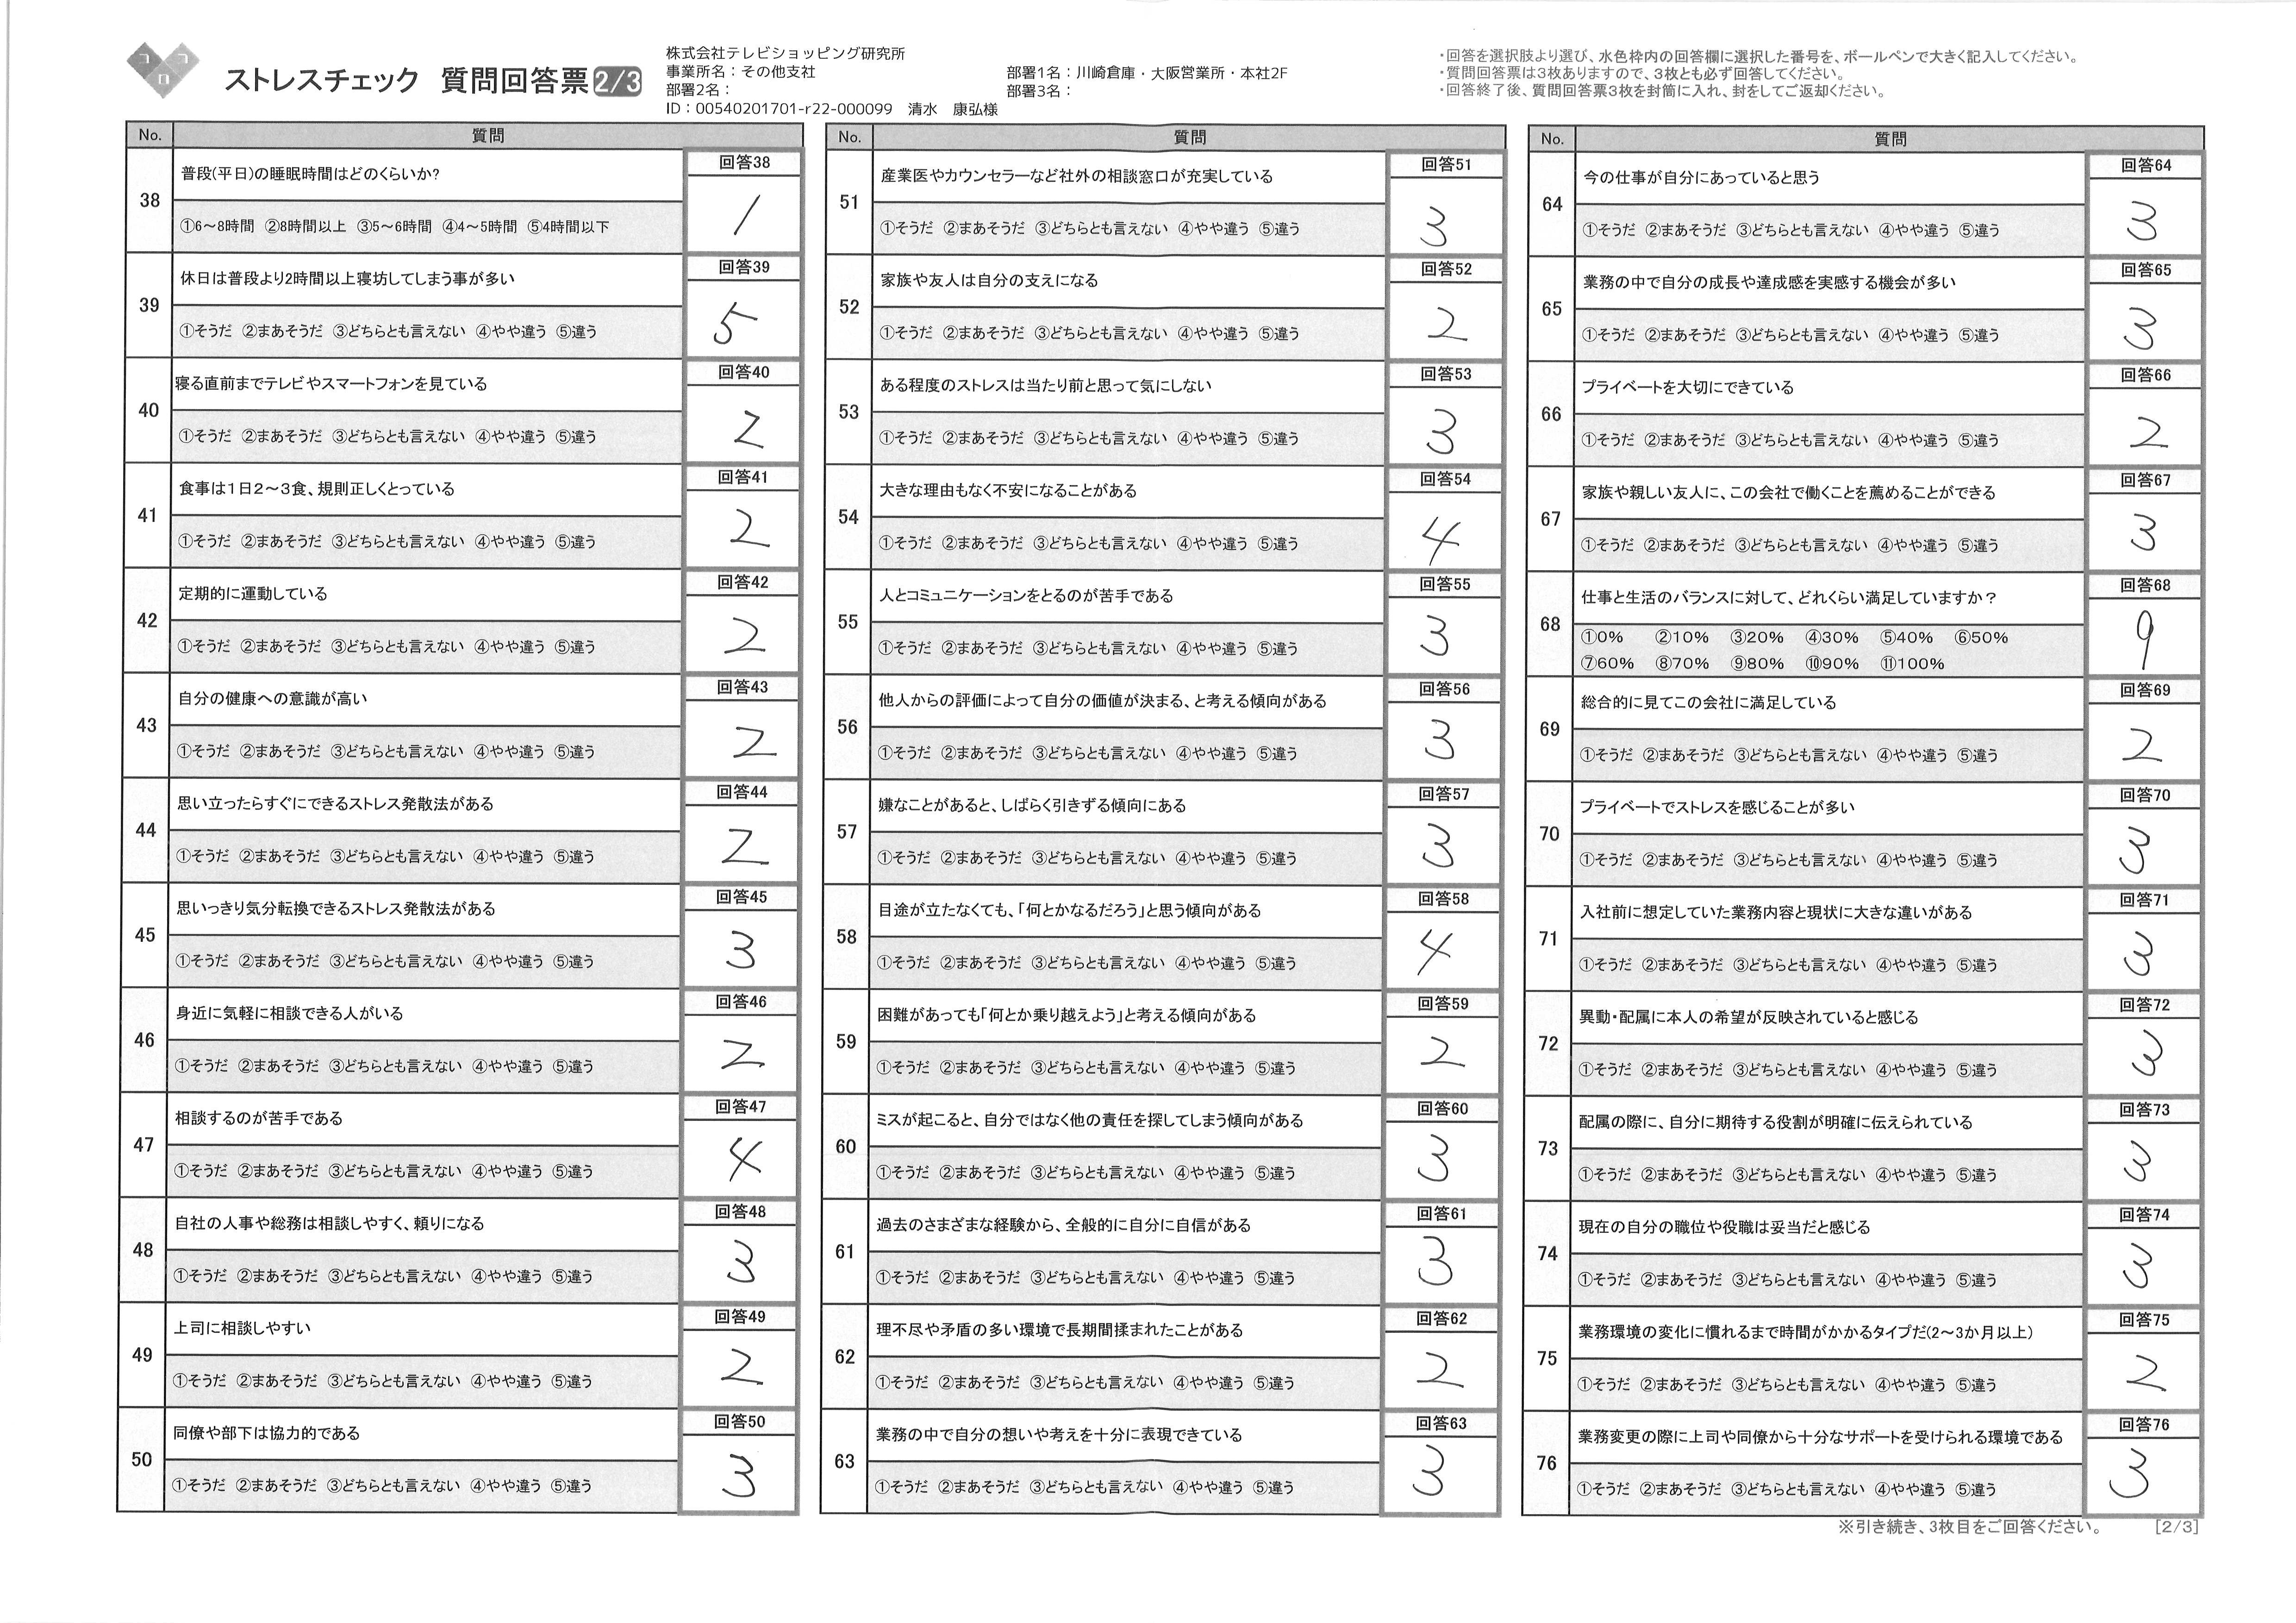 ココロ
ストレスチェック 質問回答票 2/3
株式会社テレビショッピング研究所
事業所名：その他支社
部署1名：川崎倉庫・大阪営業所・本社2F
部署2名：
部署3名：
ID：00540201701-r22-000099 清水 康弘様
・回答を選択肢より選び、水色枠内の回答欄に選択した番号を、ボールペンで大きく記入してください。
・質問回答票は3枚ありますので、3枚とも必ず回答してください。
・回答終了後、質問回答票3枚を封筒に入れ、封をしてご返却ください。
No. 質問
38 普段(平日)の睡眠時間はどのくらいか? 回答38
①6～8時間 ②8時間以上 ③5～6時間 ④4～5時間 ⑤4時間以下 1
39 休日は普段より2時間以上寝坊してしまう事が多い 回答39
①そうだ ②まあそうだ ③どちらとも言えない ④やや違う ⑤違う 5
40 寝る直前までテレビやスマートフォンを見ている 回答40
①そうだ ②まあそうだ ③どちらとも言えない ④やや違う ⑤違う 2
41 食事は1日2～3食、規則正しくとっている 回答41
①そうだ ②まあそうだ ③どちらとも言えない ④やや違う ⑤違う 2
42 定期的に運動している 回答42
①そうだ ②まあそうだ ③どちらとも言えない ④やや違う ⑤違う 2
43 自分の健康への意識が高い 回答43
①そうだ ②まあそうだ ③どちらとも言えない ④やや違う ⑤違う 2
44 思い立ったらすぐにできるストレス発散法がある 回答44
①そうだ ②まあそうだ ③どちらとも言えない ④やや違う ⑤違う 2
45 思いっきり気分転換できるストレス発散法がある 回答45
①そうだ ②まあそうだ ③どちらとも言えない ④やや違う ⑤違う 3
46 身近に気軽に相談できる人がいる 回答46
①そうだ ②まあそうだ ③どちらとも言えない ④やや違う ⑤違う 2
47 相談するのが苦手である 回答47
①そうだ ②まあそうだ ③どちらとも言えない ④やや違う ⑤違う 4
48 自社の人事や総務は相談しやすく、頼りになる 回答48
①そうだ ②まあそうだ ③どちらとも言えない ④やや違う ⑤違う 3
49 上司に相談しやすい 回答49
①そうだ ②まあそうだ ③どちらとも言えない ④やや違う ⑤違う 2
50 同僚や部下は協力的である 回答50
①そうだ ②まあそうだ ③どちらとも言えない ④やや違う ⑤違う 3
No. 質問
51 産業医やカウンセラーなど社外の相談窓口が充実している 回答51
①そうだ ②まあそうだ ③どちらとも言えない ④やや違う ⑤違う 3
52 家族や友人は自分の支えになる 回答52
①そうだ ②まあそうだ ③どちらとも言えない ④やや違う ⑤違う 2
53 ある程度のストレスは当たり前と思って気にしない 回答53
①そうだ ②まあそうだ ③どちらとも言えない ④やや違う ⑤違う 3
54 大きな理由もなく不安になることがある 回答54
①そうだ ②まあそうだ ③どちらとも言えない ④やや違う ⑤違う 4
55 人とコミュニケーションをとるのが苦手である 回答55
①そうだ ②まあそうだ ③どちらとも言えない ④やや違う ⑤違う 3
56 他人からの評価によって自分の価値が決まる、と考える傾向がある 回答56
①そうだ ②まあそうだ ③どちらとも言えない ④やや違う ⑤違う 3
57 嫌なことがあると、しばらく引きずる傾向にある 回答57
①そうだ ②まあそうだ ③どちらとも言えない ④やや違う ⑤違う 3
58 目途が立たなくても、「何とかなるだろう」と思う傾向がある 回答58
①そうだ ②まあそうだ ③どちらとも言えない ④やや違う ⑤違う 4
59 困難があっても「何とか乗り越えよう」と考える傾向がある 回答59
①そうだ ②まあそうだ ③どちらとも言えない ④やや違う ⑤違う 2
60 ミスが起こると、自分ではなく他の責任を探してしまう傾向がある 回答60
①そうだ ②まあそうだ ③どちらとも言えない ④やや違う ⑤違う 3
61 過去のさまざまな経験から、全般的に自分に自信がある 回答61
①そうだ ②まあそうだ ③どちらとも言えない ④やや違う ⑤違う 3
62 理不尽や矛盾の多い環境で長期間揉まれたことがある 回答62
①そうだ ②まあそうだ ③どちらとも言えない ④やや違う ⑤違う 2
63 業務の中で自分の想いや考えを十分に表現できている 回答63
①そうだ ②まあそうだ ③どちらとも言えない ④やや違う ⑤違う 3
No. 質問
64 今の仕事が自分にあっていると思う 回答64
①そうだ ②まあそうだ ③どちらとも言えない ④やや違う ⑤違う 3
65 業務の中で自分の成長や達成感を実感する機会が多い 回答65
①そうだ ②まあそうだ ③どちらとも言えない ④やや違う ⑤違う 3
66 プライベートを大切にできている 回答66
①そうだ ②まあそうだ ③どちらとも言えない ④やや違う ⑤違う 2
67 家族や親しい友人に、この会社で働くことを薦めることができる 回答67
①そうだ ②まあそうだ ③どちらとも言えない ④やや違う ⑤違う 3
68 仕事と生活のバランスに対して、どれくらい満足していますか？ 回答68
①0% ②10% ③20% ④30% ⑤40% ⑥50% 9
⑦60% ⑧70% ⑨80% ⑩90% ⑪100%
69 総合的に見てこの会社に満足している 回答69
①そうだ ②まあそうだ ③どちらとも言えない ④やや違う ⑤違う 2
70 プライベートでストレスを感じることが多い 回答70
①そうだ ②まあそうだ ③どちらとも言えない ④やや違う ⑤違う 3
71 入社前に想定していた業務内容と現状に大きな違いがある 回答71
①そうだ ②まあそうだ ③どちらとも言えない ④やや違う ⑤違う 3
72 異動・配属に本人の希望が反映されていると感じる 回答72
①そうだ ②まあそうだ ③どちらとも言えない ④やや違う ⑤違う 3
73 配属の際に、自分に期待する役割が明確に伝えられている 回答73
①そうだ ②まあそうだ ③どちらとも言えない ④やや違う ⑤違う 3
74 現在の自分の職位や役職は妥当だと感じる 回答74
①そうだ ②まあそうだ ③どちらとも言えない ④やや違う ⑤違う 3
75 業務環境の変化に慣れるまで時間がかかるタイプだ(2～3か月以上) 回答75
①そうだ ②まあそうだ ③どちらとも言えない ④やや違う ⑤違う 2
76 業務変更の際に上司や同僚から十分なサポートを受けられる環境である 回答76
①そうだ ②まあそうだ ③どちらとも言えない ④やや違う ⑤違う 3
※引き続き、3枚目をご回答ください。 [2/3]